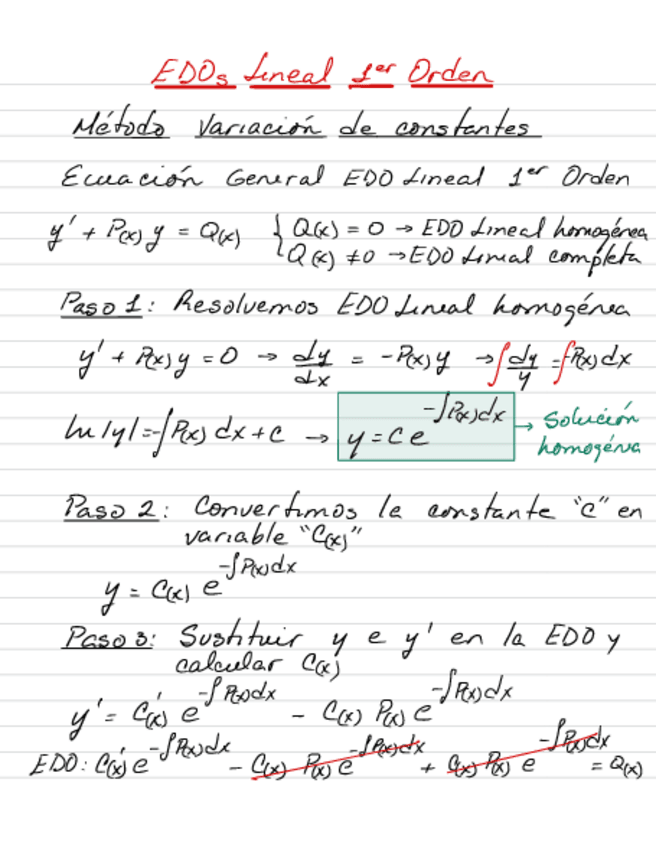 EDOs Lineal 1er Orden
Método Variación de constantes
Ecuación General EDO Lineal 1er Orden
y' + P(x) y = Q(x) { Q(x) = 0 → EDO Lineal homogénea
Q(x) ≠ 0 → EDO Lineal completa
Paso 1: Resolvemos EDO Lineal homogénea
y' + P(x) y = 0 → dy/dx = -P(x) y → ∫ dy/y = ∫-P(x) dx
ln|y| = -∫P(x) dx + C → y = C e^(-∫P(x)dx) → Solución homogénea
Paso 2: Convertimos la constante "C" en
variable "C(x)"
y = C(x) e^(-∫P(x)dx)
Paso 3: Sustituir y e y' en la EDO y
calcular C(x)
y' = C'(x) e^(-∫P(x)dx) - C(x) P(x) e^(-∫P(x)dx)
EDO: C'(x) e^(-∫P(x)dx) - C(x) P(x) e^(-∫P(x)dx) + C(x) P(x) e^(-∫P(x)dx) = Q(x)